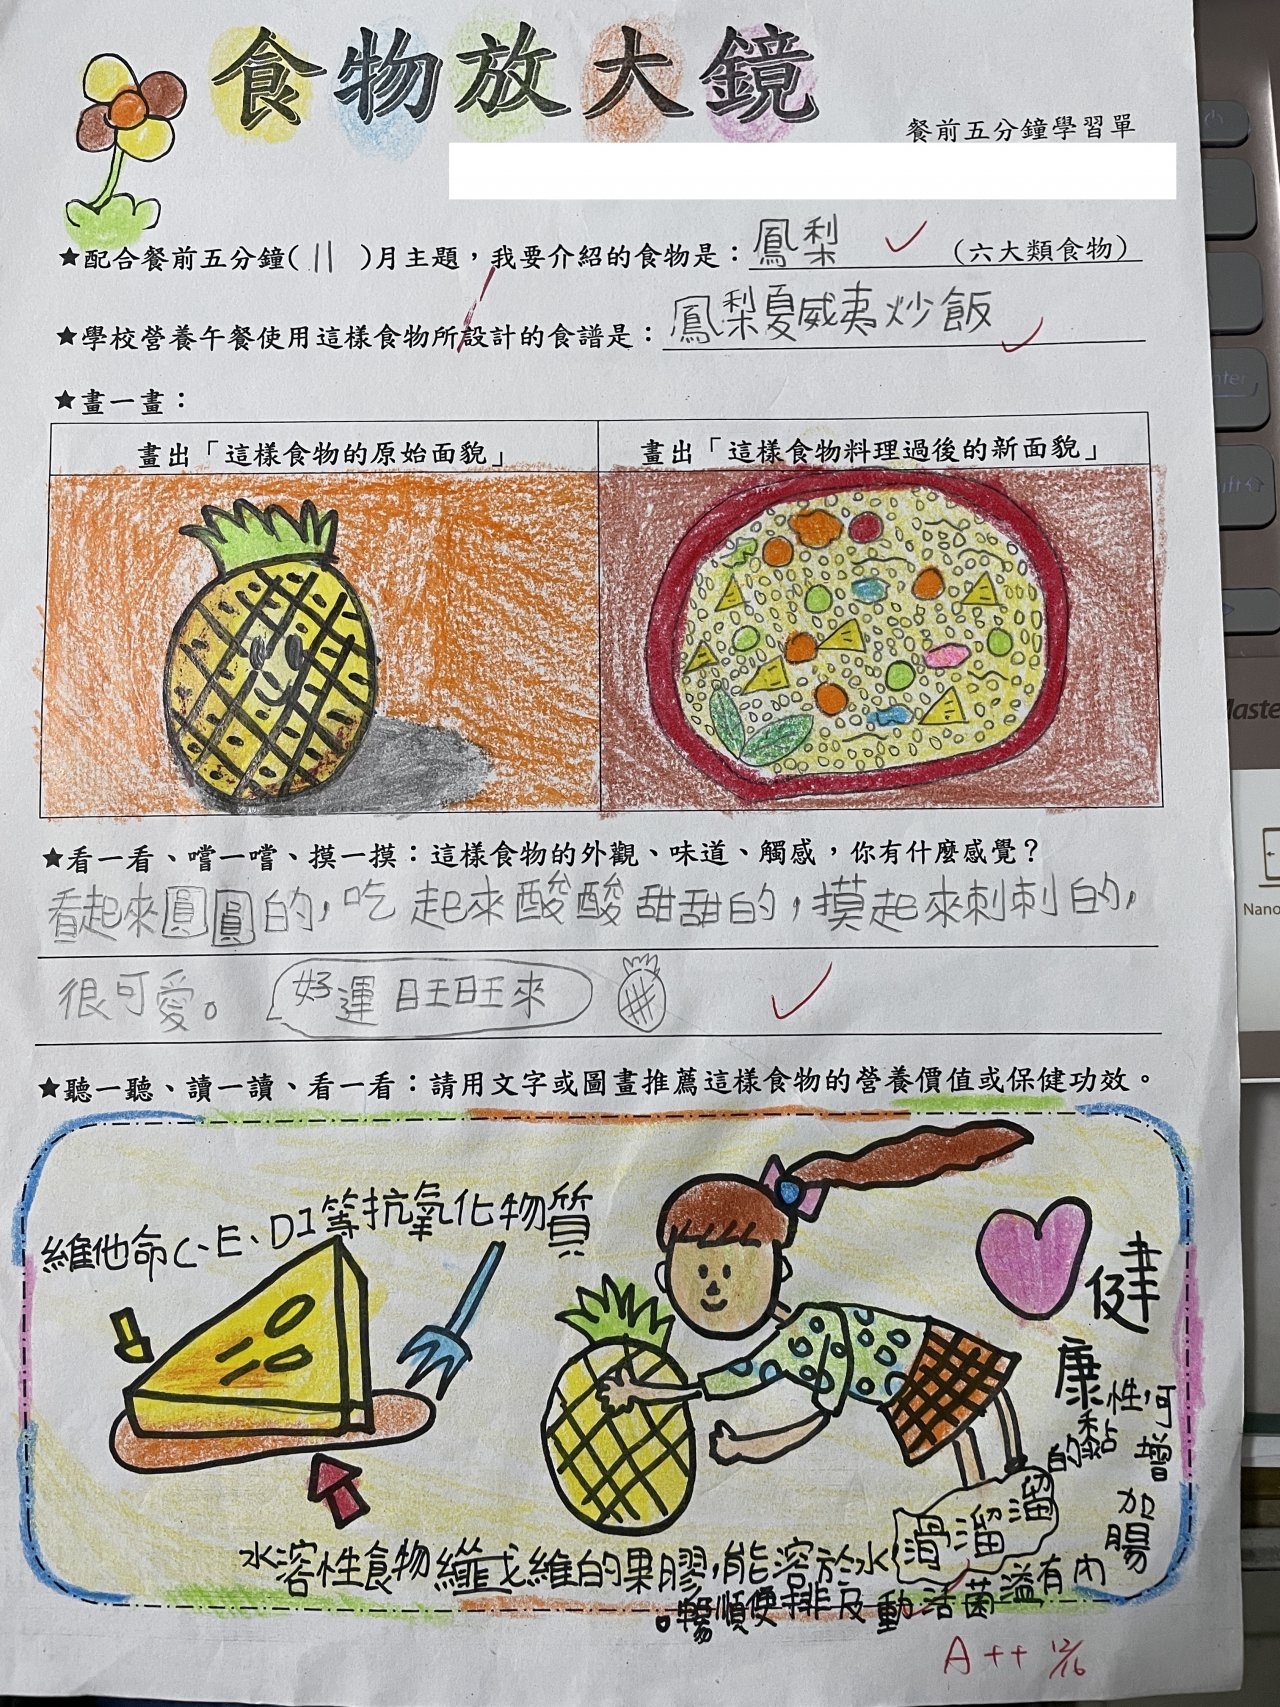 食物放大鏡
餐前五分鐘學習單
★配合餐前五分鐘( 11 )月主題，我要介紹的食物是：鳳梨 (六大類食物)
★學校營養午餐使用這樣食物所設計的食譜是：鳳梨夏威夷炒飯
★畫一畫：
畫出「這樣食物的原始面貌」
畫出「這樣食物料理過後的新面貌」
★看一看、嚐一嚐、摸一摸：這樣食物的外觀、味道、觸感，你有什麼感覺？
看起來圓圓的，吃起來酸酸甜甜的，摸起來刺刺的，
很可愛。 好運旺旺來
★聽一聽、讀一讀、看一看：請用文字或圖畫推薦這樣食物的營養價值或保健功效。
維他命C、E、D1等抗氧化物質
健康
水溶性食物纖維的果膠，能溶於水
滑溜溜
的黏性，可增加腸
內有溢菌活動及排便順暢。
A++ 12/16
enter
Maste
Nano